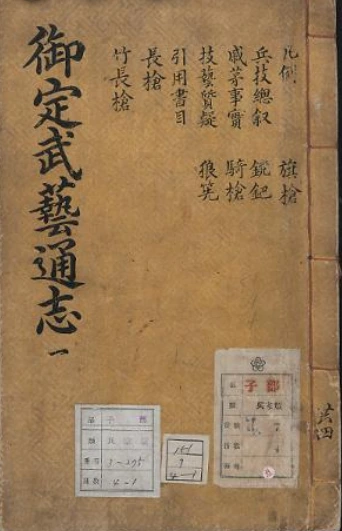 凡例 旗槍
兵技總叙 鎲鈀
戚茅事實 騎槍
技藝質疑 狼筅
引用書目
長槍
竹長槍
御定武藝通志 一
共四
子部
4-1
4-1